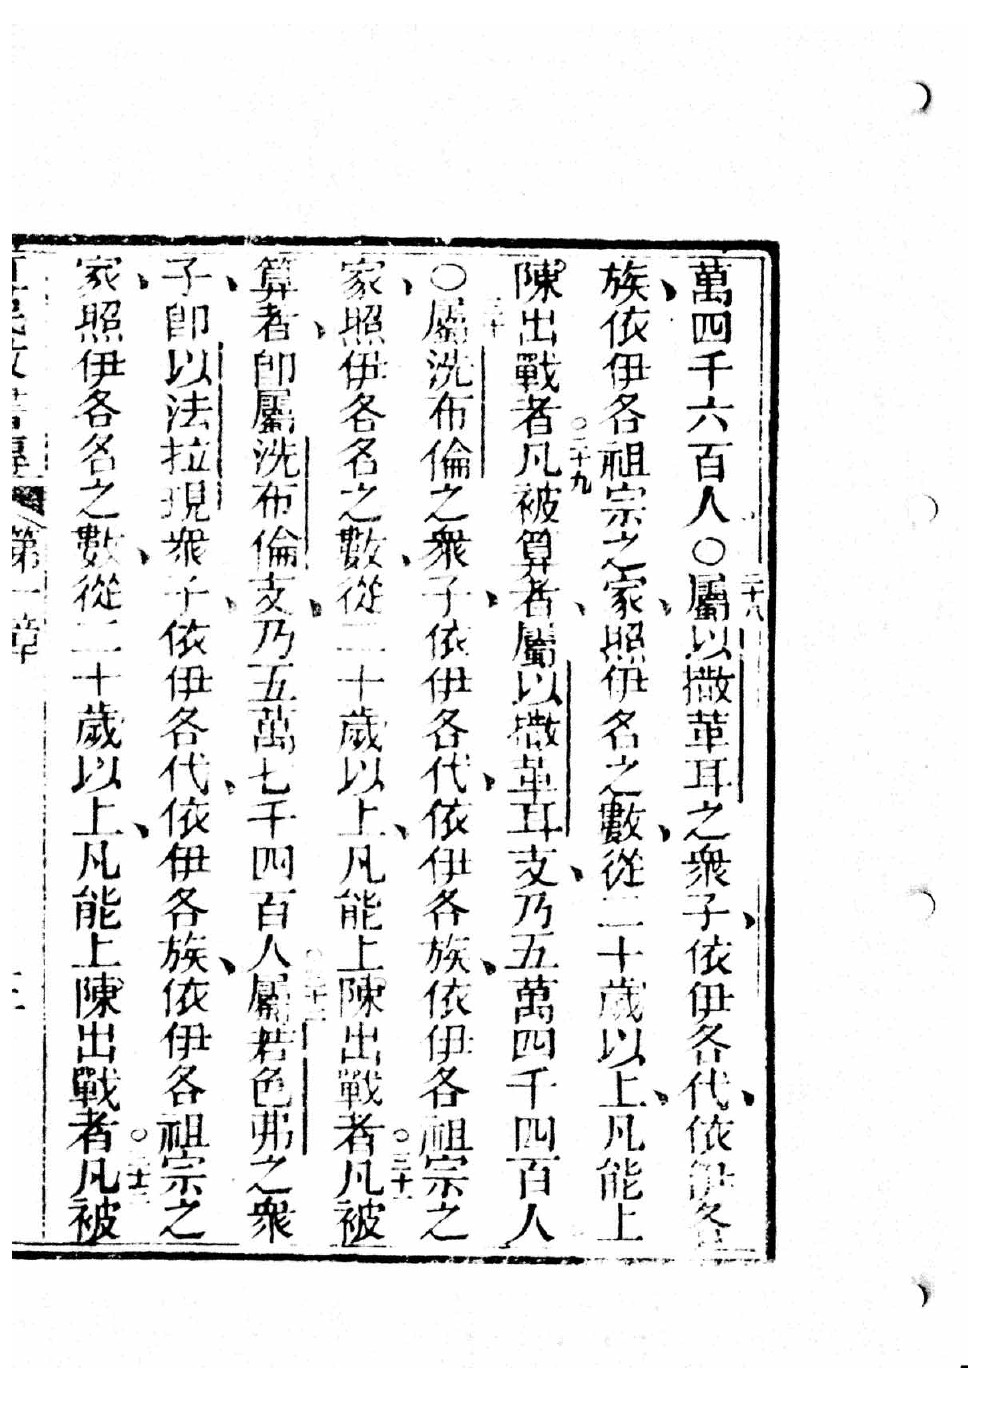 萬四千六百人○二十八屬以撒革耳之衆子、依伊各代、依伊各
族、依伊各祖宗之家、照伊名之數、從二十歲以上、凡能上
陳出戰者○二十九凡被算者、屬以撒革耳支、乃五萬四千四百人
○三十屬洗布倫之衆子、依伊各代、依伊各族、依伊各祖宗之
家、照伊各名之數、從二十歲以上、凡能上陳出戰者○三十一凡被
算者、即屬洗布倫支、乃五萬七千四百人○三十二屬若色弗之衆
子、即以法拉現衆子、依伊各代、依伊各族、依伊各祖宗之
家、照伊各名之數、從二十歲以上、凡能上陳出戰者○三十三凡被
第一章